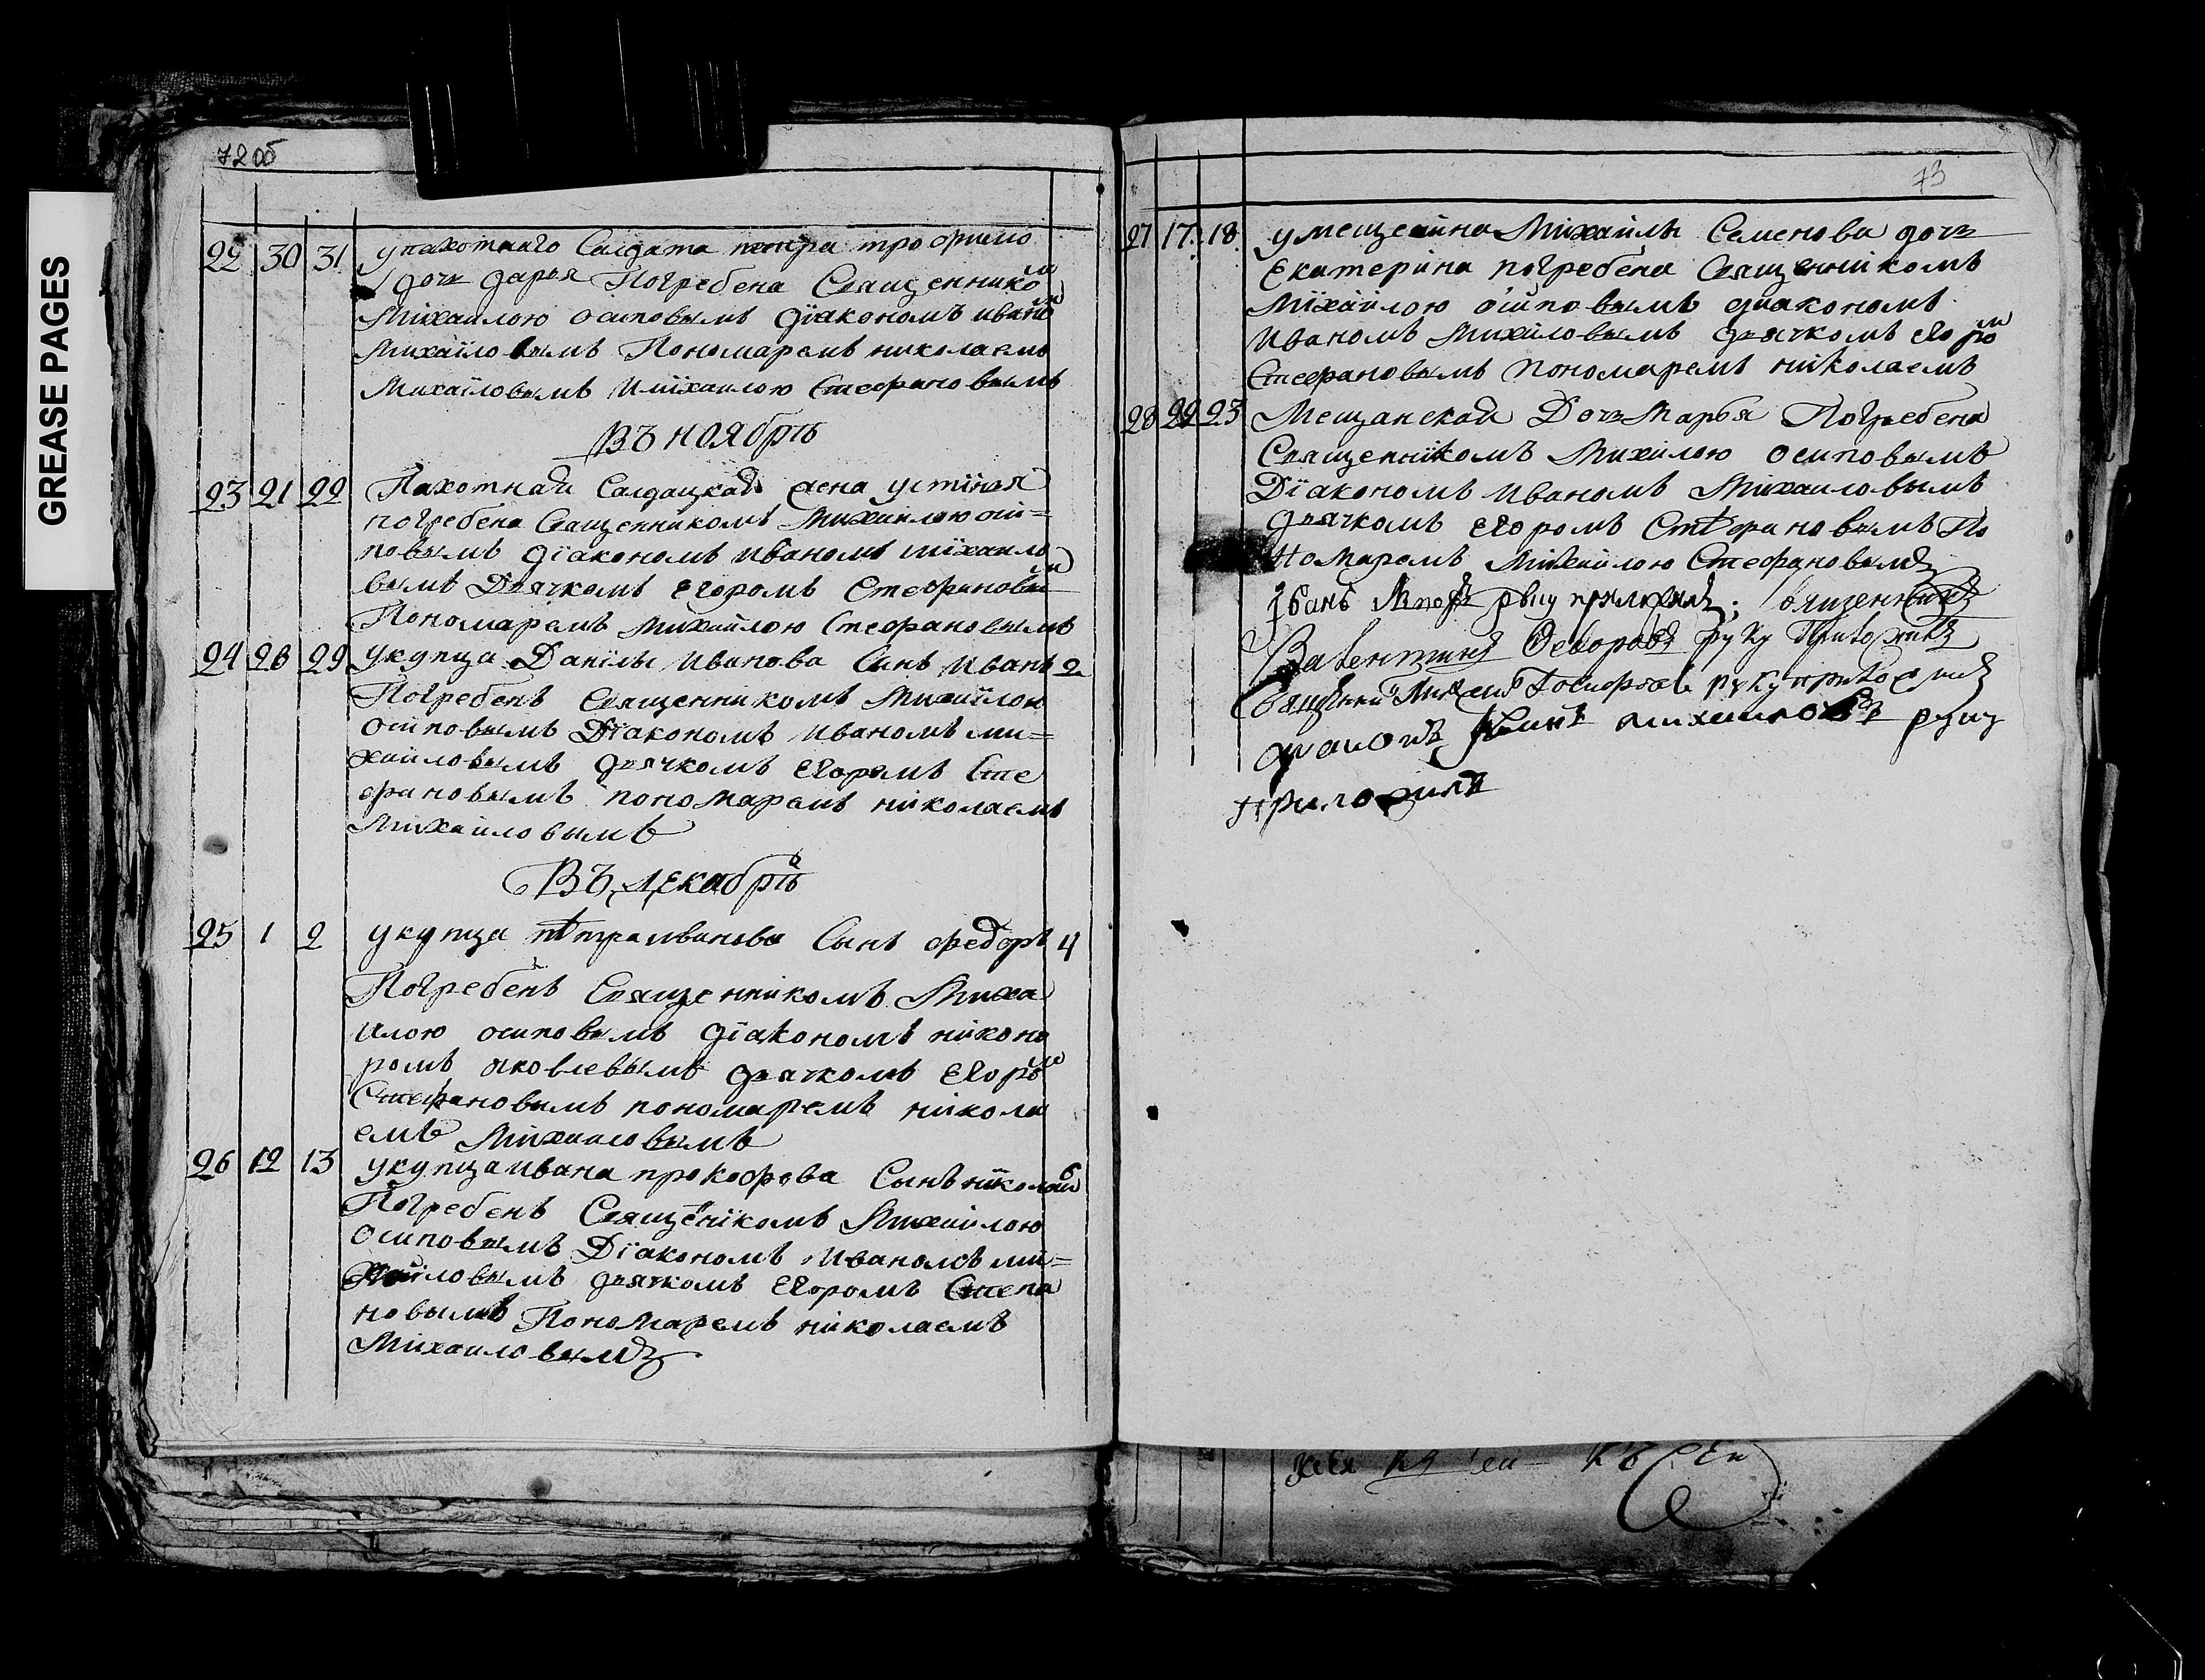 GREASE PAGES
72 об
22 30 31 упахотнаго Салдата петра трофимо
дочь дарья Погребена Священникомъ
Михаилою осиповымъ діакономъ иваномъ
Михаиловымъ Пономаремъ николаемъ
Михаиловымъ Имихаилою Стефановымъ
Въ ноябрѣ
23 21 22 Пахотная Салдацкая жена устиния
погребена Священникомъ Михаилою оси=
повымъ діакономъ иваномъ михаило
вымъ Дьячкомъ егоромъ Стефановымъ
Пономаремъ михаилою Стефановымъ
24 28 29 укупца Данилы иванова Сынъ иванъ 2
Погребенъ Священникомъ Михаилою
осиповымъ Діакономъ иваномъ ми=
хаиловымъ дьячкомъ егоромъ Сте
фановымъ пономаремъ николаемъ
Михаиловымъ
Въ декабрѣ
25 1 2 укупца пѣтра иванова Сынъ федоръ 4
Погребенъ Священникомъ Миха
илою осиповымъ діакономъ никоно
ромъ яковлевымъ дьячкомъ егоромъ
Стефановымъ пономаремъ никола
емъ Михаиловымъ
26 12 13 укупца ивана прокофьева Сынъ николай 6
Погребенъ Священикомъ Михаилою
осиповымъ Діакономъ иваномъ ми=
хаиловымъ дьячкомъ егоромъ Степа
новымъ Пономаремъ николаемъ
Михаиловымъ
73
27 17 18 умещеина Михаилы Семенова дочь
Екатерина погребена Священникомъ
михаилою осиповымъ диакономъ
иваномъ михаиловымъ дьячкомъ егоромъ
Стефановымъ пономаремъ николаемъ
28 22 23 Мещанская Дочь марья Погребена
Священникомъ Михаилою осиповымъ
Діакономъ иваномъ Михаиловымъ
дьячкомъ егоромъ Стѣфановымъ По
номаремъ михаилою Стефановымъ
руку приложилъ Священникъ
Валентинъ Федоровъ руку Приложилъ
Священникъ Михаилъ руку приложилъ
диаконъ иванъ михаиловъ руку
приложилъ